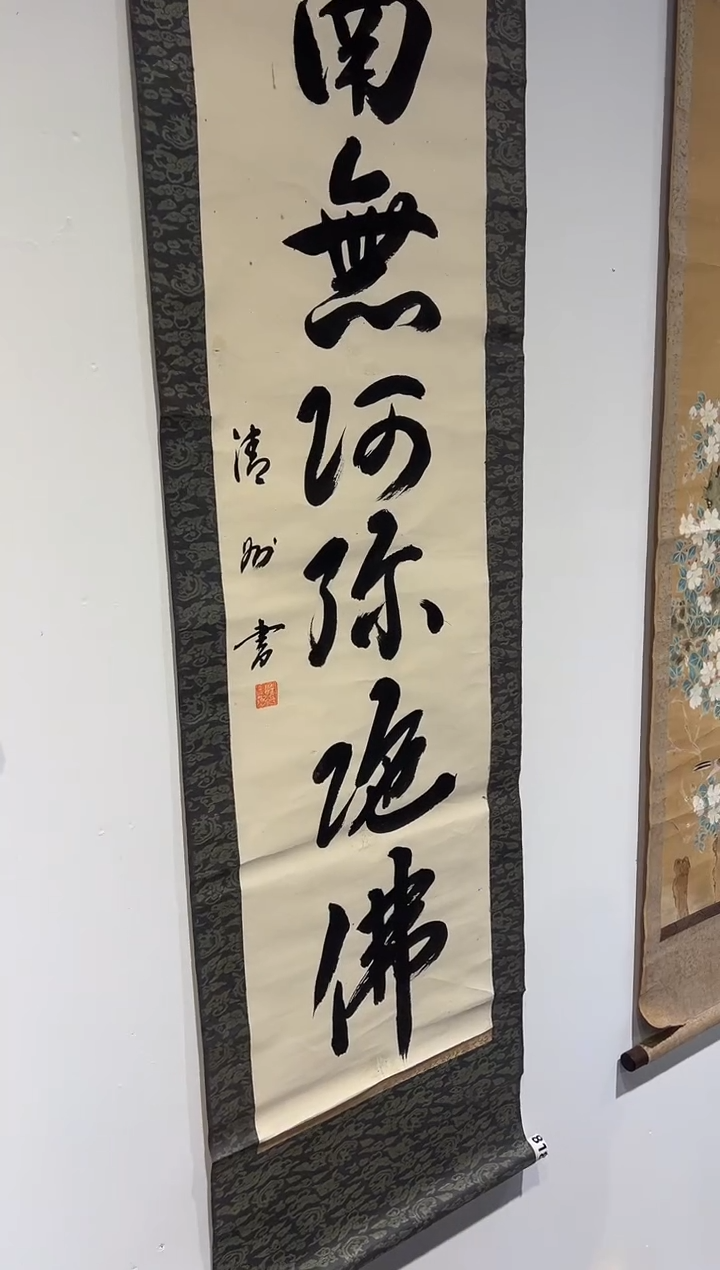 南無阿弥陀佛
清州書